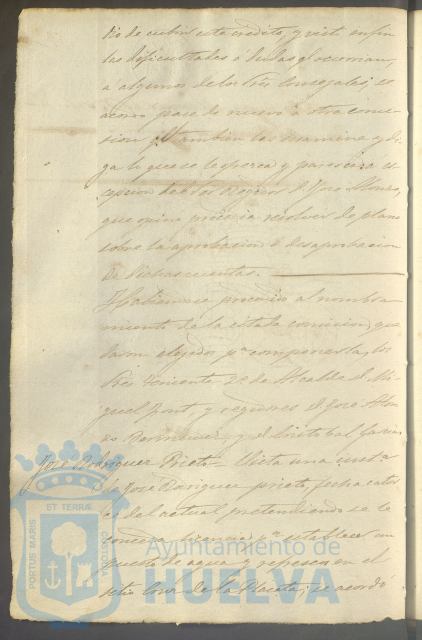 dio de cubrir este credito, y visto en fin
las dificultades ó dudas q.e ocurrian,
á algunos de los Sres. Concejales, se
acordó pase de nuevo á otra comi-
sion p.a q.e tambien las examine y di-
ga lo que se le ofrezca y parezca, es-
cepcion de los Regidores D. Jose Alonso,
que opina precisa resolver de plano
sobre la aprobacion ó desaprobacion
de dichas cuentas.
Habiendose procedido al nombra-
miento de la citada comision, que-
daron elejidos p.a componerla, los
Sres. teniente 2.o de Alcalde D. Mi-
guel Pont, y regidores D. Jose Alon-
so Bermudez y D. Cristobal Garcia
Jose Rodriguez Prieto - Vista una instª
de Jose Rodriguez prieto, fecha cator
ce del actual pretendiendo se le
conceda licencia p.a establecer un
puesto de agua y refresco en el
sitio lonja de la Placeta; se acordó
PORTUS MARIS
ET TERRÆ
CUSTODIA
Ayuntamiento de
HUELVA